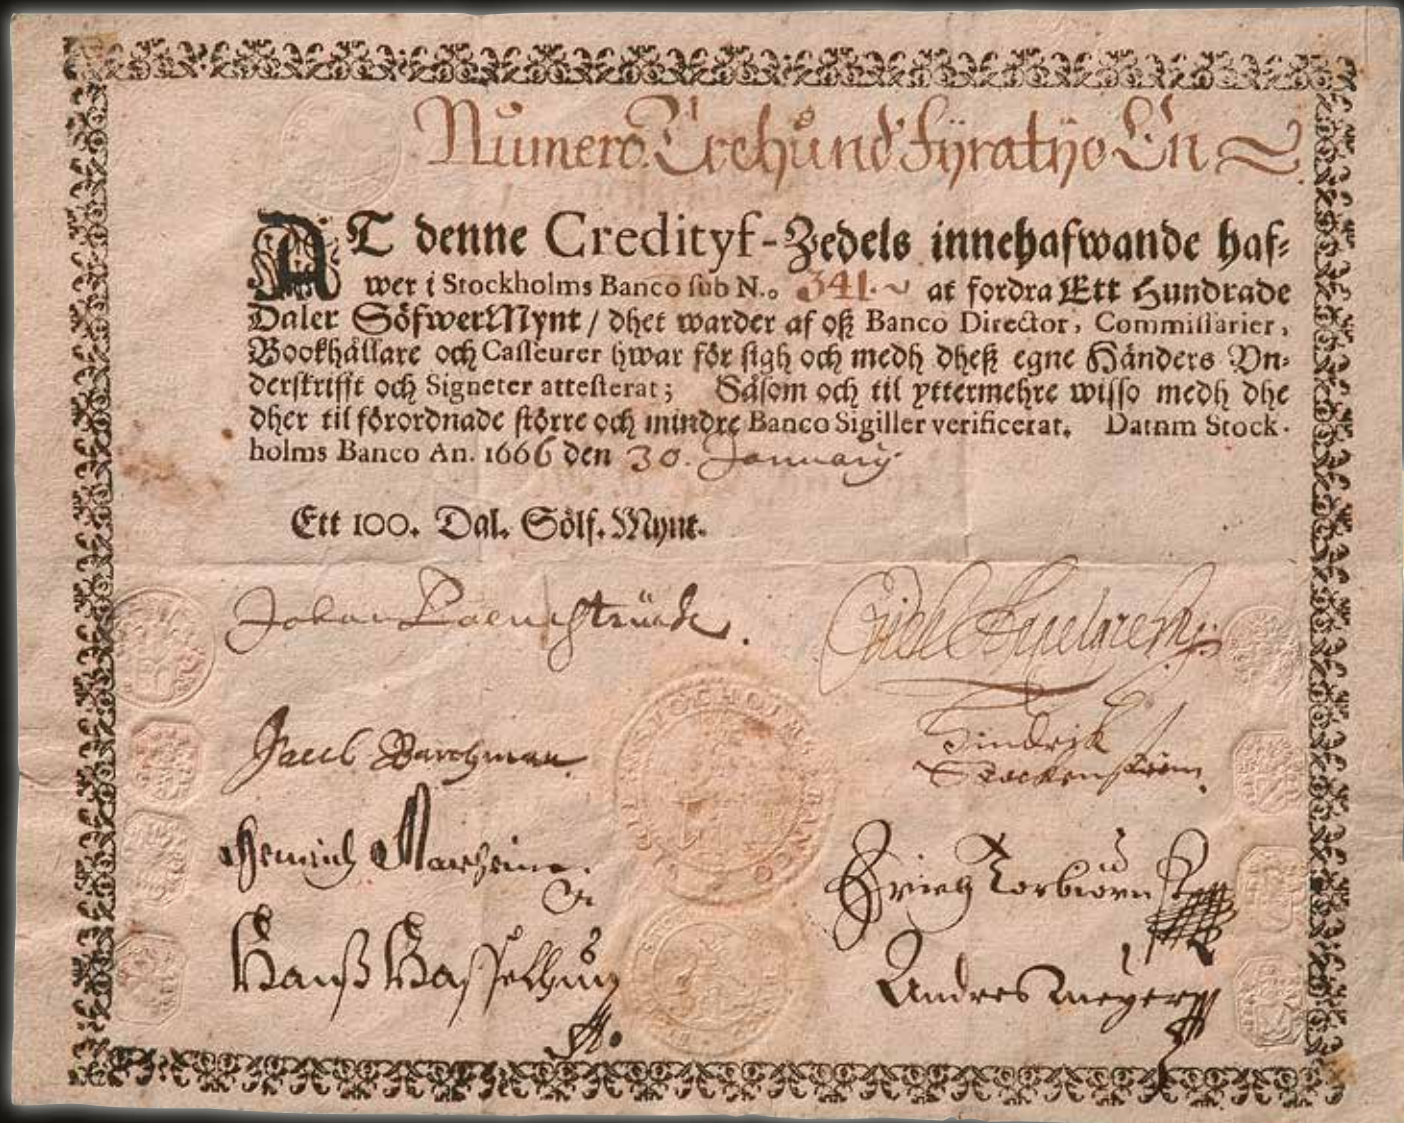 Numero Trehund Fÿratÿo En
AT denne Credityf-Zedels innehafwande haf-
wer i Stockholms Banco sub N.o 341. at fordra Ett Hundrade
Daler SöfwerMynt / dhet warder af oß Banco Director, Commissarier,
Bookhållare och Casseurer hwar för sigh och medh dheß egne Händers Vn-
derskrifft och Signeter attesterat; Såsom och til yttermehre wisso medh dhe
dher til förordnade större och mindre Banco Sigiller verificerat. Datnm Stock-
holms Banco An. 1666 den 30. January
Ett 100. Dal. Sölf. Mynt.
Johan
Jacob Barchman
Hindrik
Stockenström
Henrich
Erich Torbiörn
Hanß
Andres Meyer